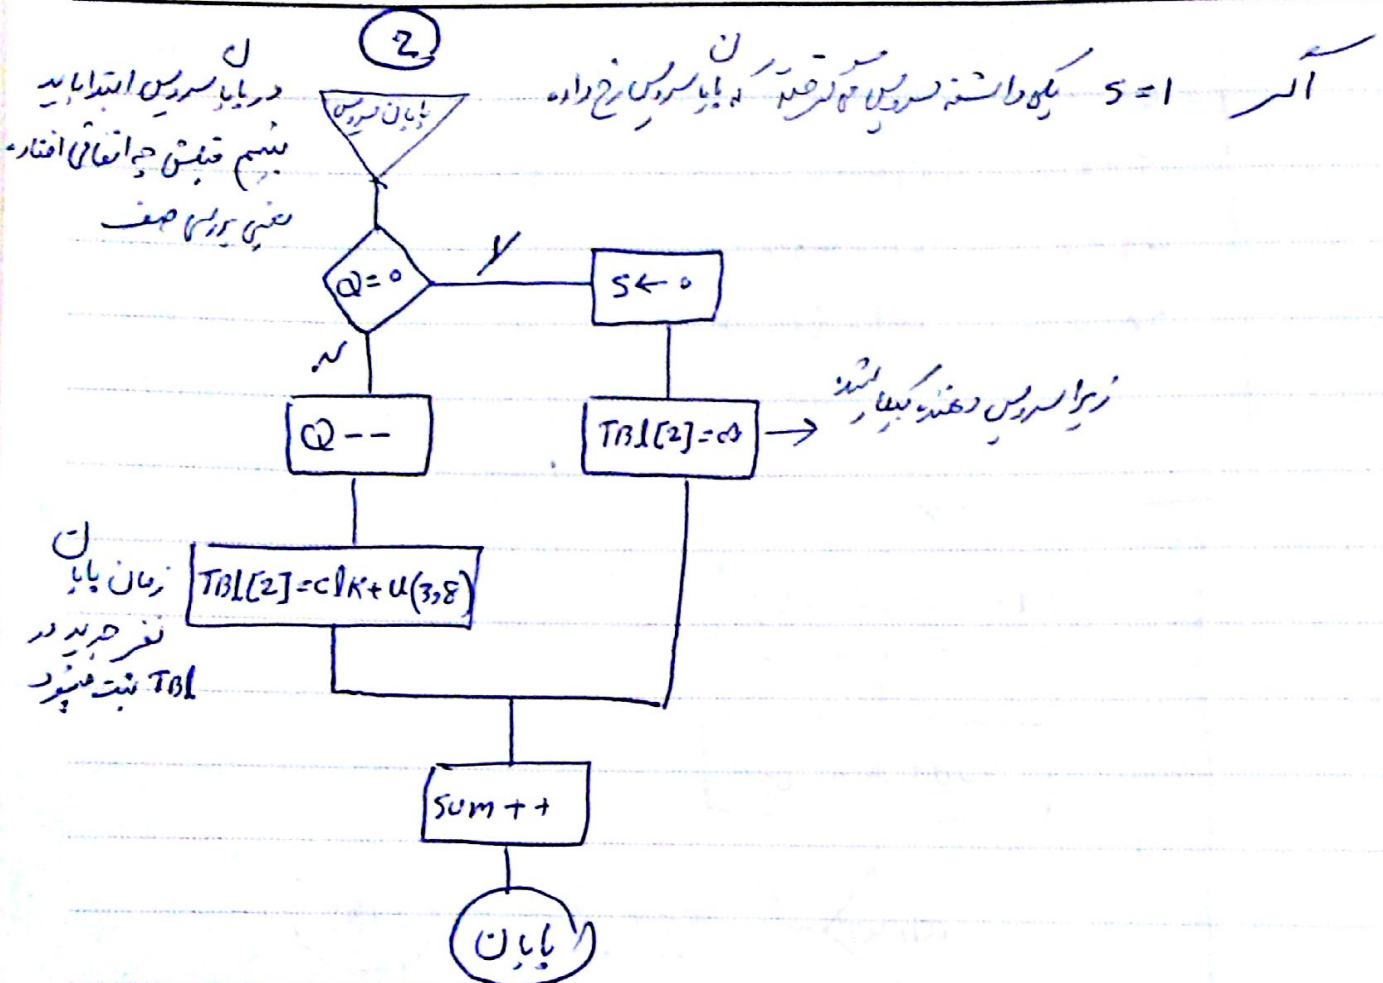 2
اگر s=1 یکی داشته سرویس می گرفته که پایان سرویس رخ داده
در پایان سرویس ابتدا باید
ببینیم قبلش چه اتفاقی افتاده
یعنی بررسی صف
پایان سرویس
Q=0
Y
S←0
N
Q--
TBL[2]=∞
زیرا سرویس دهنده بیکار شده
TBL[2]=clk+u(3,8)
زمان پایان
نفر جدید در
TBL ثبت میشود
Sum++
پایان